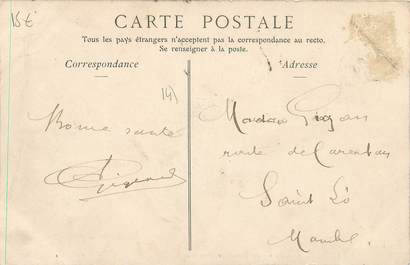 15€
CARTE POSTALE
Tous les pays étrangers n'acceptent pas la correspondance au recto.
Se renseigner à la poste.
Correspondance
Adresse
(14)
Bonne santé
Madame
route de Carentan
Saint Lô
Manche